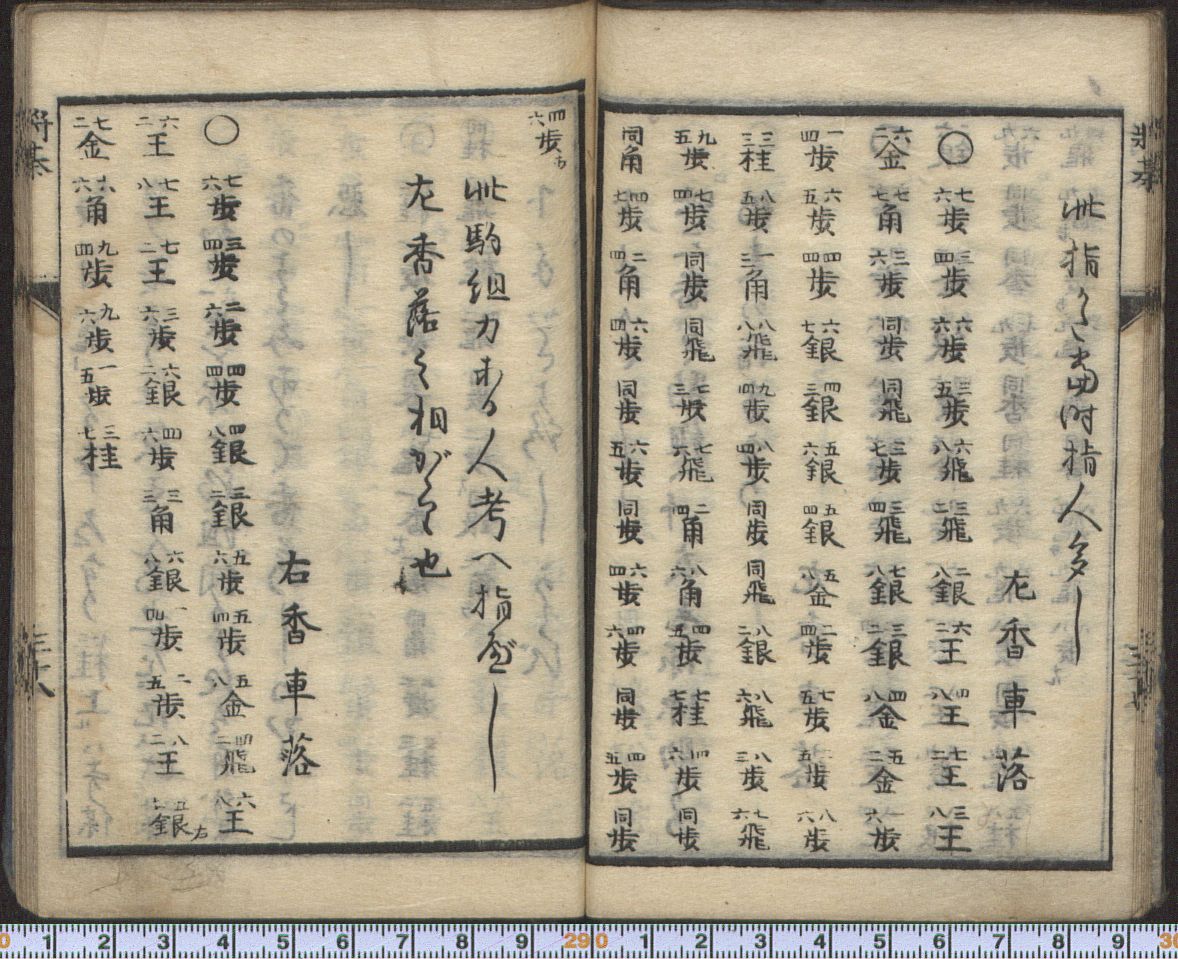 此指かた當時指人多し
左香車落
○ 七六歩 三四歩 六六歩 三五歩 六八飛 三二飛 二八銀 六二王 四八王 七二王 三八王
六二金 七七角 三六歩 同歩 同飛 三七歩 三四飛 七八銀 三二銀 四八金 五二金 一六歩
一四歩 六五歩 四四歩 六七銀 四三銀 五六銀 五四銀 五八金 二四歩 七五歩 二五歩 八六歩
三三桂 八五歩 三一角 八八飛 九四歩 八四歩 同歩 同飛 八二銀 八六飛 八三歩 七六飛
九五歩 七四歩 同歩 同飛 七三歩 七六飛 二四角 八六角 四五歩 七七桂 四六歩 同歩
同角 四七歩 二四角 六四歩 同歩 六五歩 同歩 六四歩 四六歩 同歩 四五歩 同歩
四六歩
此駒組力ある人考へ指べし
左香落之相がゝり也
右香車落
○ 七六歩 三四歩 二六歩 四四歩 四八銀 三二銀 五六歩 五四歩 五八金 四二飛 六八王
六二王 七八王 七二王 三六歩 六二銀 四六歩 三三角 六八銀 一四歩 二五歩 八二王 五七銀左
七二金 六六角 九四歩 九六歩 一五歩 三七桂
将棊
三十八